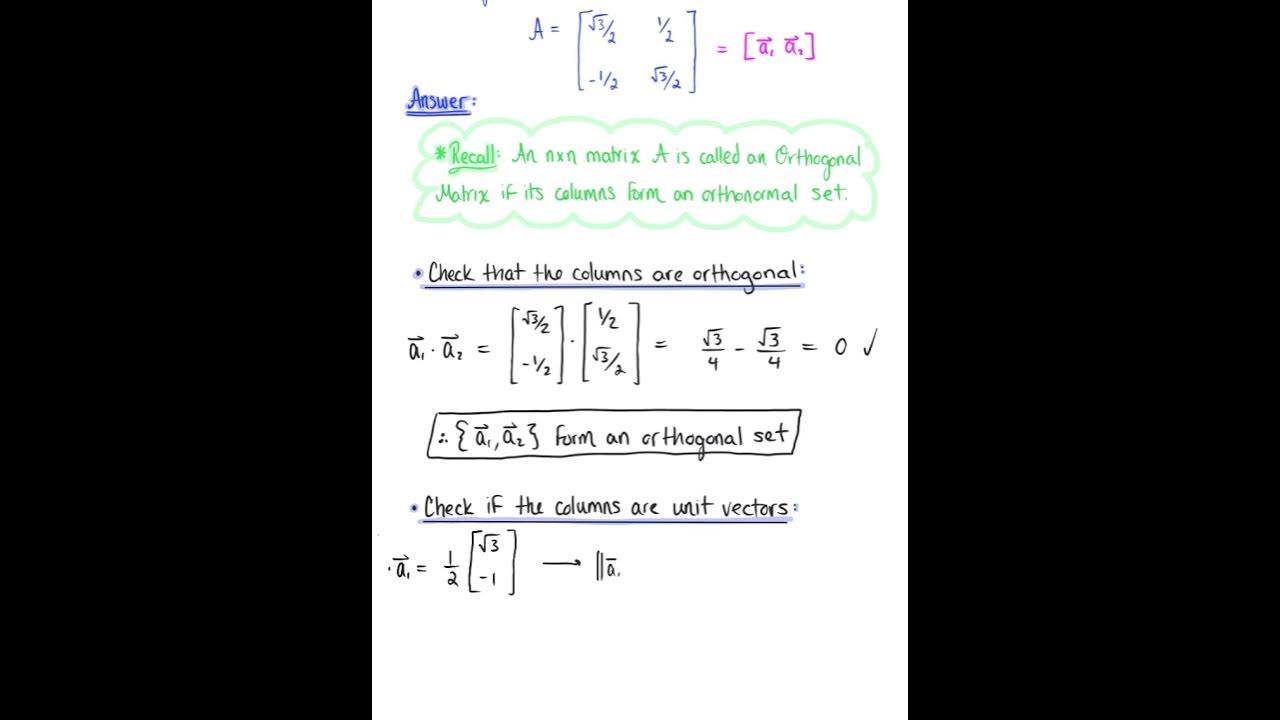 A = [√3/2 1/2
-1/2 √3/2] = [a⃗₁ a⃗₂]
Answer:
*Recall: An nxn matrix A is called an Orthogonal
Matrix if its columns form an orthonormal set.
• Check that the columns are orthogonal:
a⃗₁ · a⃗₂ = [√3/2 -1/2] · [1/2 √3/2] = √3/4 - √3/4 = 0 ✓
∴ {a⃗₁, a⃗₂} form an orthogonal set
• Check if the columns are unit vectors:
· a⃗₁ = 1/2 [√3 -1] → ||a̅₁